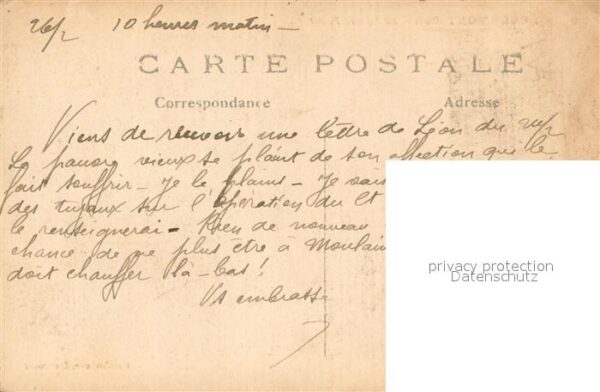 26/2 10 heures matin –
CARTE POSTALE
Correspondance Adresse
Viens de recevoir une lettre de Léon du 24/2
Le pauvre vieux se plaint de son affection qui le
fait souffrir – Je le plains – Je vais
des tuyaux sur l'opération du Ct
le renseignerai – Rien de nouveau
chance de ne plus être à Moulain
doit chauffer là-bas !
Vs embrasse
privacy protection
Datenschutz